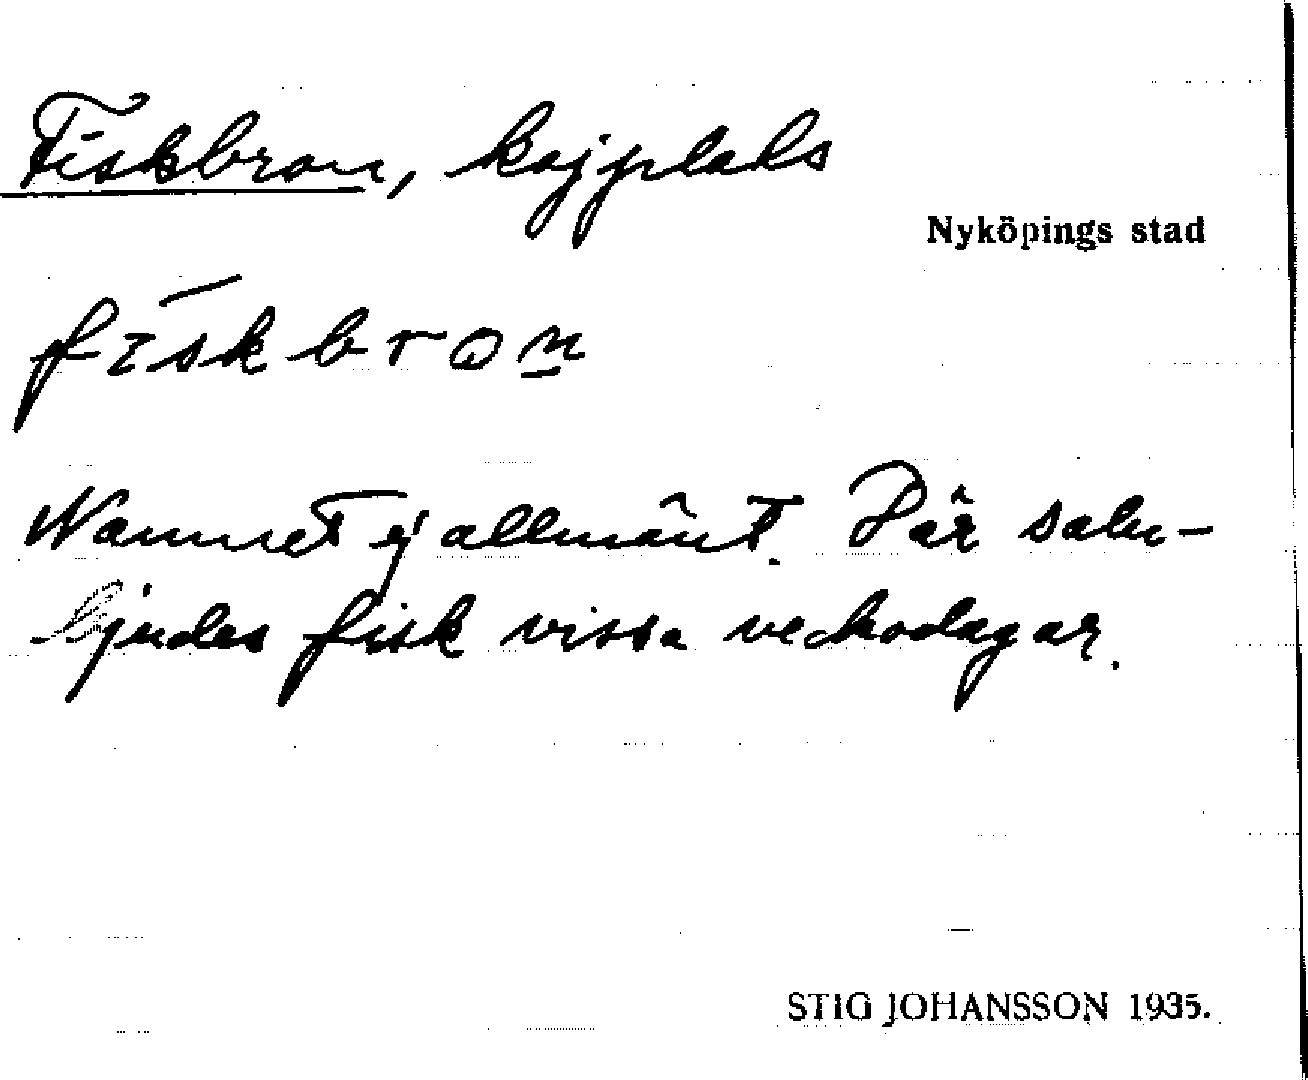 Fiskbron, kajplats
Nyköpings stad
fiskbron
Namnet ej allmänt. Där salu-
bjudes fisk vissa veckodagar.
STIG JOHANSSON 1935.